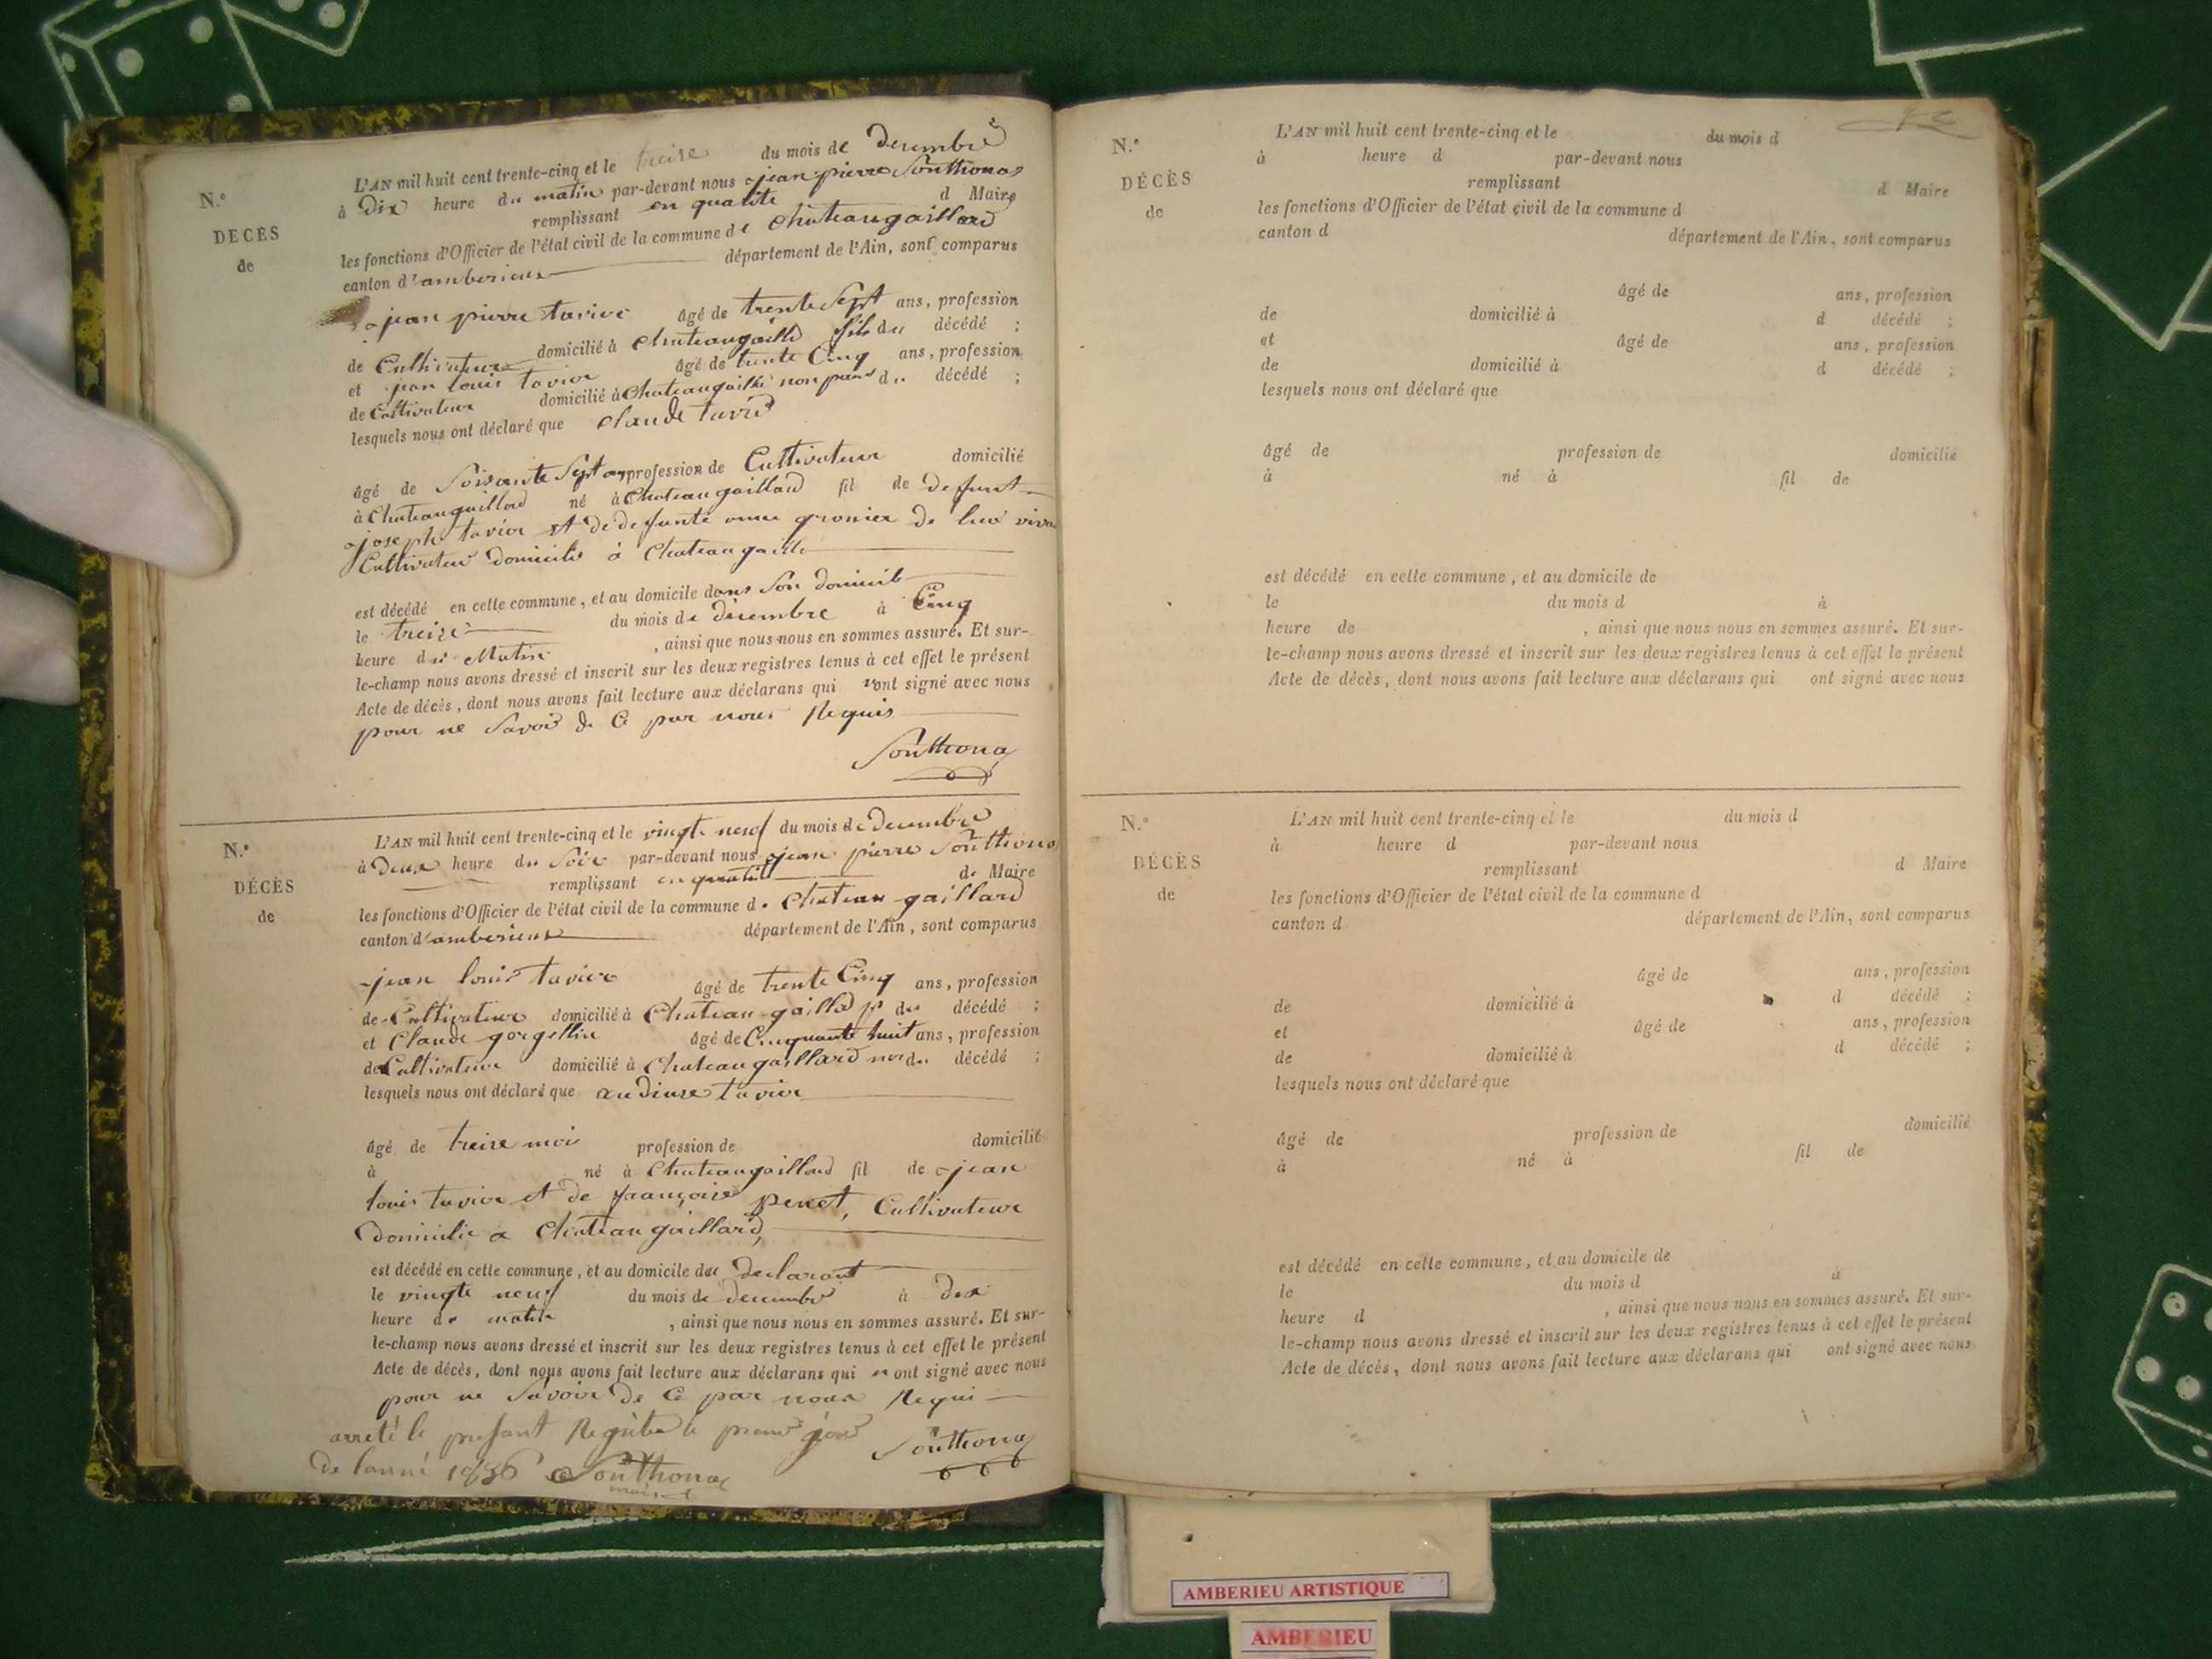 N.°
DÉCÈS
de
L'AN mil huit cent trente-cinq et le treize du mois de decembre
à Dix heure du matin par-devant nous jean pierre Southonax
remplissant en qualité d Maire
les fonctions d'Officier de l'état civil de la commune de chateaugaillard
canton d'amberieux département de l'Ain, sont comparus
jean pierre tavier âgé de trente Sept ans, profession
de Cultivateur domicilié à chateaugailld fils du décédé ;
et jean louis tavier âgé de trente Cinq ans, profession
de Cultivateur domicilié à Chateaugailld non parent du décédé ;
lesquels nous ont déclaré que claude tavier
âgé de Soisante Sept ans profession de Cultivateur domicilié
à Chateaugaillard né à Chateaugaillard fil de defunt
joseph tavier et de defunte
Cultivateur domicilié à Chateaugailld
est décédé en cette commune, et au domicile dans Son domicil
le treize du mois de décembre à Cinq
heure du Matin , ainsi que nous nous en sommes assuré. Et sur-
le-champ nous avons dressé et inscrit sur les deux registres tenus à cet effet le présent
Acte de décès, dont nous avons fait lecture aux déclarans qui n'ont signé avec nous
pour ne Savoir de Ce par nous Requis
Southonax
N.°
DÉCÈS
de
L'AN mil huit cent trente-cinq et le vingte neuf du mois de decembre
à Deux heure du Soir par-devant nous jean pierre Southonax
remplissant en qualité de Maire
les fonctions d'Officier de l'état civil de la commune d. Chateau gaillard
canton d'amberieux département de l'Ain, sont comparus
jean louis tavier âgé de trente Cinq ans, profession
de Cultivateur domicilié à Chateau gaillard du décédé ;
et Claude gorgellin âgé de Cinquante huit ans, profession
de Cultivateur domicilié à Chateaugaillard non du décédé ;
lesquels nous ont déclaré que tavier
âgé de treize moi profession de domicilié
à né à Chateaugaillard fil de jean
louis tavier et de françoise penet, Cultivateur
Domicilié a Chateau gaillard,
est décédé en cette commune, et au domicile du declarant
le vingte neuf du mois de decembre à dix
heure du matin , ainsi que nous nous en sommes assuré. Et sur-
le-champ nous avons dressé et inscrit sur les deux registres tenus à cet effet le présent
Acte de décès, dont nous avons fait lecture aux déclarans qui n ont signé avec nous
pour ne Savoir De Ce par nous Requi
arreté le present Registre le premier jour Southonax
De lanné 1836 Southonax
maire
N.°
DÉCÈS
de
L'AN mil huit cent trente-cinq et le du mois d
à heure d par-devant nous
remplissant d Maire
les fonctions d'Officier de l'état civil de la commune d
canton d département de l'Ain, sont comparus
âgé de ans, profession
de domicilié à d décédé ;
et âgé de ans, profession
de domicilié à d décédé ;
lesquels nous ont déclaré que
âgé de profession de domicilié
à né à fil de
est décédé en cette commune, et au domicile de
le du mois d à
heure de , ainsi que nous nous en sommes assuré. Et sur-
le-champ nous avons dressé et inscrit sur les deux registres tenus à cet effet le présent
Acte de décès, dont nous avons fait lecture aux déclarans qui ont signé avec nous
N.°
DÉCÈS
de
L'AN mil huit cent trente-cinq et le du mois d
à heure d par-devant nous
remplissant d Maire
les fonctions d'Officier de l'état civil de la commune d
canton d département de l'Ain, sont comparus
âgé de ans, profession
de domicilié à d décédé ;
et âgé de ans, profession
de domicilié à d décédé ;
lesquels nous ont déclaré que
âgé de profession de domicilié
à né à fil de
est décédé en cette commune, et au domicile de
le du mois d à
heure d , ainsi que nous nous en sommes assuré. Et sur-
le-champ nous avons dressé et inscrit sur les deux registres tenus à cet effet le présent
Acte de décès, dont nous avons fait lecture aux déclarans qui ont signé avec nous
AMBERIEU ARTISTIQUE
AMBERIEU